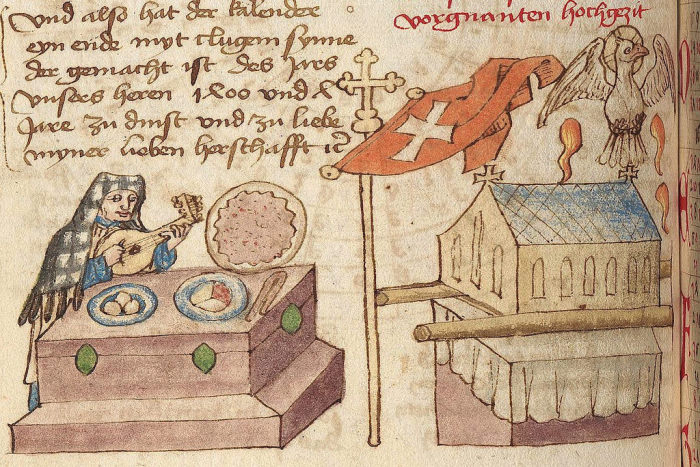 Vnd also hat der kalender
eyn ende myt clugem synne
der gemacht ist des Jars
Vnsers heren 1400 vnd X
Jare zu dinst vnd zu liebe
myner lieben herschafft
vorgnanten hochgezit